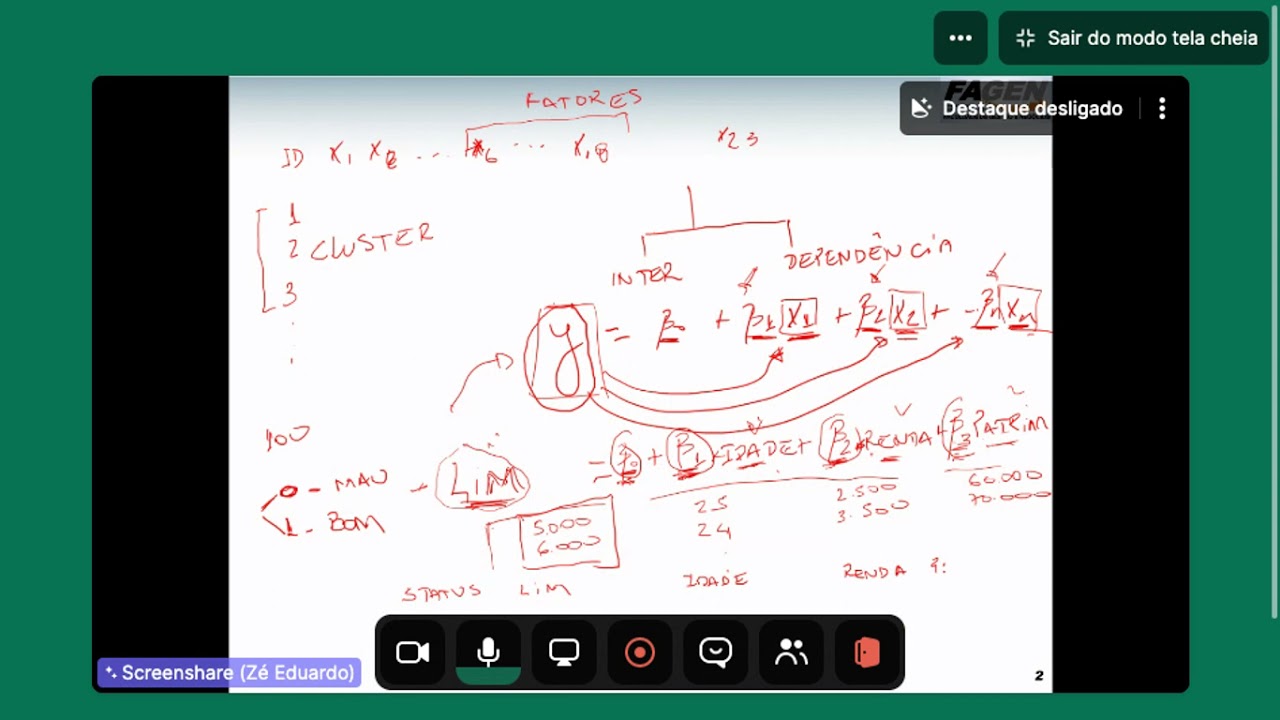 Sair do modo tela cheia
FAGEN
Destaque desligado
FATORES
ID X1 X2 ... X6 ... X18 X23
1
2 CLUSTER
3
INTER DEPENDÊNCIA
y = β0 + β1 X1 + β2 X2 + ... βn Xn
100
0 - MAU
1 - BOM
LIM = β0 + β1 · IDADE + β2 · RENDA + β3 PATRIM
5.000 25 2.500 60.000
6.000 24 3.500 70.000
STATUS LIM IDADE RENDA P:
Screenshare (Zé Eduardo)
2